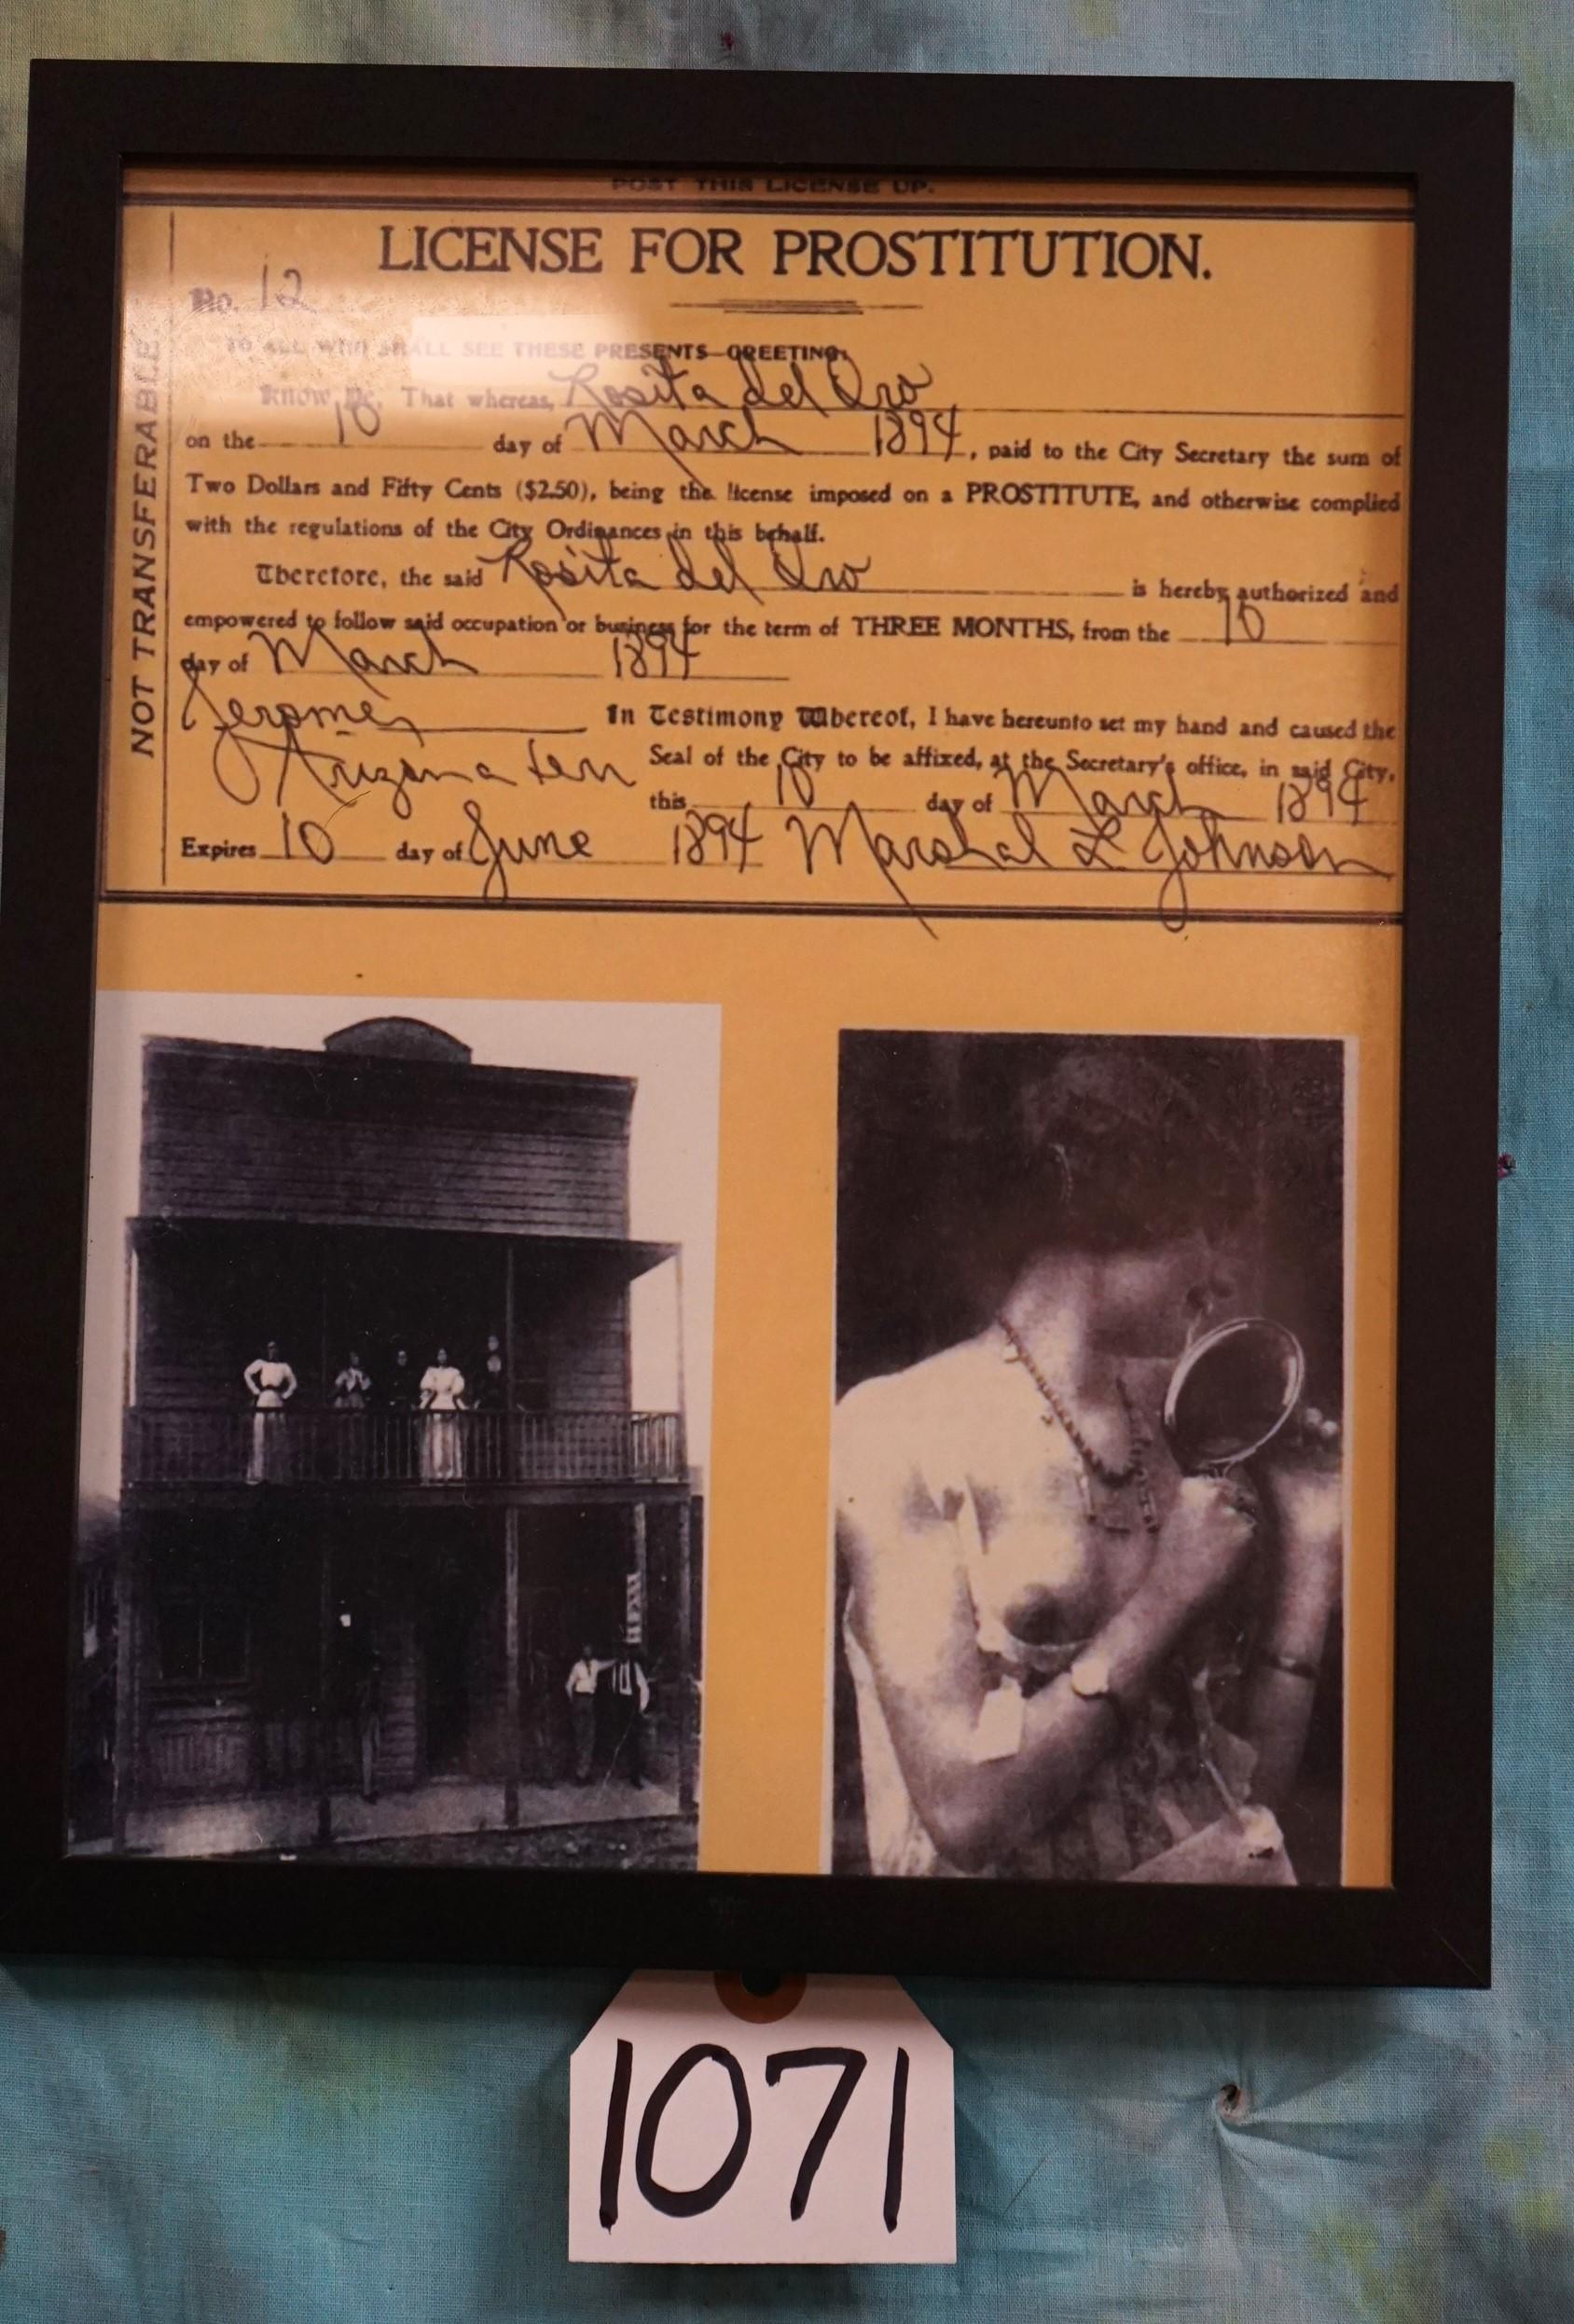 POST THIS LICENSE UP.
LICENSE FOR PROSTITUTION.
No. 12
NOT TRANSFERABLE
TO ALL WHO SHALL SEE THESE PRESENTS—GREETING:
Know Ye, That whereas, Rosita del Oro
on the 10 day of March 1894, paid to the City Secretary the sum of
Two Dollars and Fifty Cents ($2.50), being the license imposed on a PROSTITUTE, and otherwise complied
with the regulations of the City Ordinances in this behalf.
Therefore, the said Rosita del Oro is hereby authorized and
empowered to follow said occupation or business for the term of THREE MONTHS, from the 10
day of March 1894
Jerome, In Testimony Whereof, I have hereunto set my hand and caused the
Arizona Terr Seal of the City to be affixed, at the Secretary's office, in said City,
this 10 day of March 1894
Expires 10 day of June 1894 Marshal L Johnson
1071